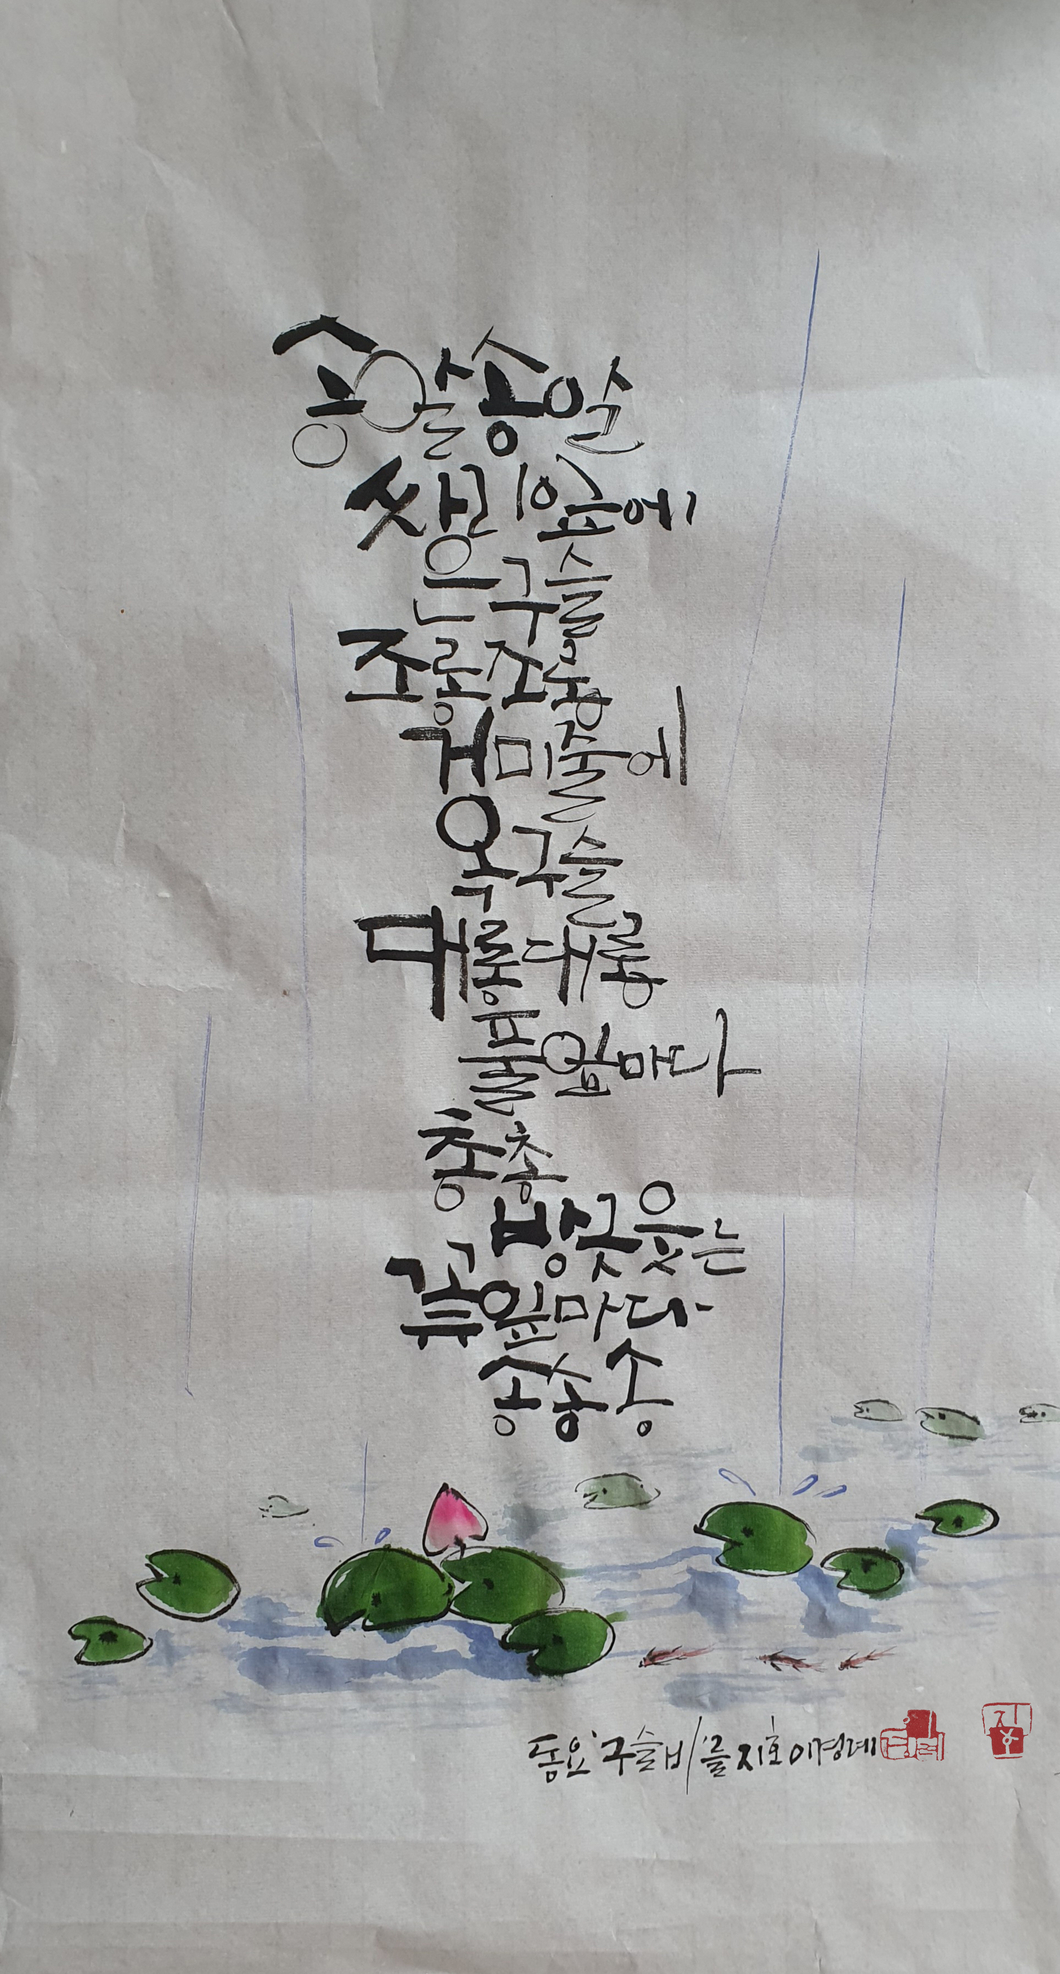 송알송알
싸리잎에
은구슬
조롱조롱
거미줄에
옥구슬
대롱대롱
풀잎마다
총총
방긋웃는
꽃잎마다
송송송
동요 '구슬비'를 지호 이경례
지호